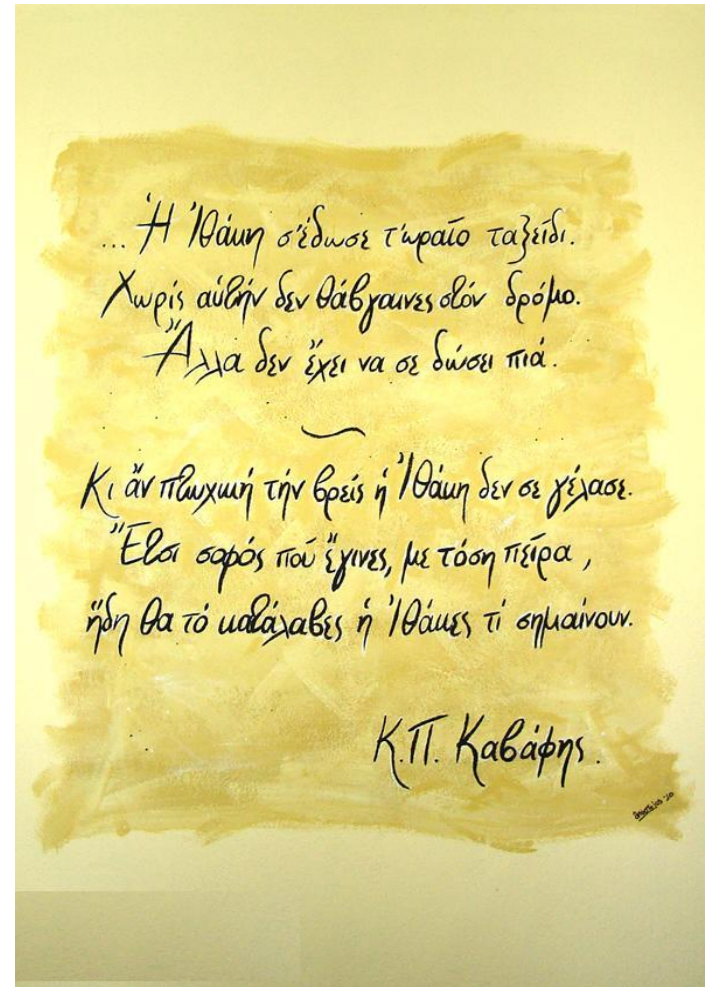 ... Ἡ Ἰθάκη σ' ἔδωσε τ' ὡραῖο ταξεῖδι.
Χωρίς αὐτήν δεν θάβγαινες στόν δρόμο.
Ἄλλα δεν ἔχει να σε δώσει πιά.
Κι ἄν πτωχική τήν βρεῖς ἡ Ἰθάκη δεν σε γέλασε.
Ἔτσι σοφός πού ἔγινες, με τόση πεῖρα,
ἤδη θα τό κατάλαβες ἡ Ἰθάκες τί σημαίνουν.
Κ.Π. Καβάφης.